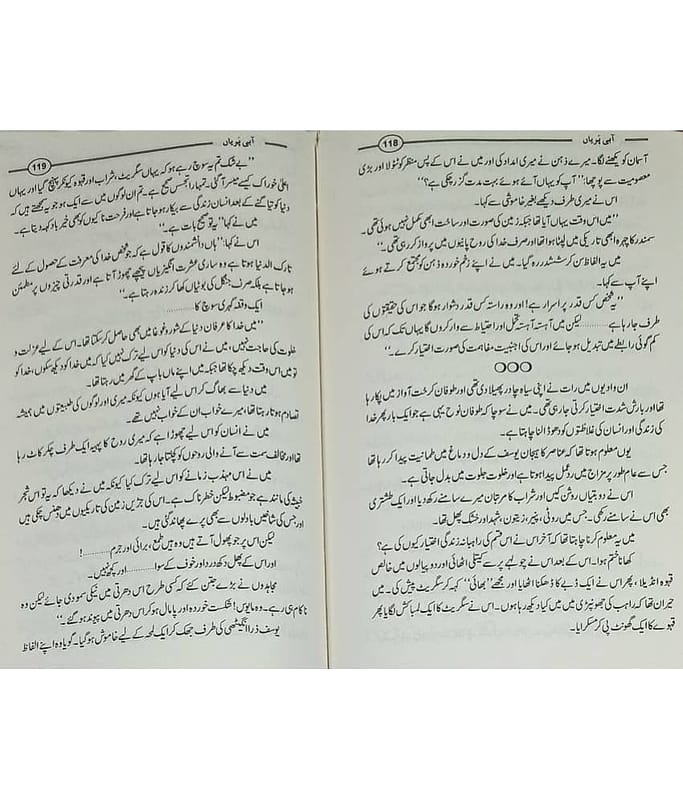 آبی پریاں
118
آسمان کو دیکھنے لگا۔ میرے ذہن نے میری امداد کی اور میں نے اس کے پس منظر کو ٹٹولا اور بڑی
معصومیت سے پوچھا: ’’آپ کو یہاں آئے ہوئے بہت مدت گزر چکی ہے؟‘‘
اس نے میری طرف دیکھے بغیر خاموشی سے کہا۔
’’میں اس وقت یہاں آیا تھا جبکہ زمین کی صورت اور ساخت ابھی مکمل نہیں ہوئی تھی۔
سمندر کا چہرہ ابھی تاریکی میں لپٹا ہوا تھا اور صرف خدا کی روح پانیوں میں پرواز کر رہی تھی۔‘‘
میں یہ الفاظ سن کر ششدر رہ گیا۔ میں نے اپنے زخم خوردہ ذہن کو مجتمع کرتے ہوئے
اپنے آپ سے کہا۔
’’یہ شخص کس قدر پراسرار ہے! اور وہ راستہ کس قدر دشوار ہوگا جو اس کی حقیقتوں کی
طرف جا رہا ہے..........لیکن میں آہستہ آہستہ تحمل اور احتیاط سے وار کروں گا یہاں تک کہ اس کی
کم گوئی رابطے میں تبدیل ہو جائے اور اس کی اجنبیت مفاہمت کی صورت اختیار کرے۔‘‘
○○○
ان وادیوں میں رات نے اپنی سیاہ چادر پھیلا دی تھی اور طوفان کرخت آواز میں پکار رہا
تھا اور بارش شدت اختیار کرتی جا رہی تھی۔ میں نے سوچا کہ طوفان نوح یہی ہے جو ایک بار پھر خدا
کی زندگی اور انسان کی غلاظتوں کو دھو ڈالنا چاہتا ہے۔
یوں معلوم ہوتا تھا کہ عناصر کا ہیجان یوسف کے دل و دماغ میں طمانیت پیدا کر رہا تھا
جس سے عام طور پر مزاج میں ردعمل پیدا ہوتا ہے اور خلوت جلوت میں بدل جاتی ہے۔
اس نے دو بتیاں روشن کیں اور شراب کا مرتبان میرے سامنے رکھ دیا اور ایک طشتری
بھی اس نے سامنے رکھی۔ جس میں روٹی، پنیر، زیتون، شہد اور خشک پھل تھا۔
میں یہ معلوم کرنا چاہتا تھا کہ آخر اس نے اس قسم کی راہبانہ زندگی اختیار کیوں کی ہے؟
کھانا ختم ہوا۔ اس کے بعد اس نے چولہے پر سے کیتلی اٹھائی اور دو پیالوں میں خالص
قہوہ انڈیلا، پھر اس نے ایک ڈبے کا ڈھکنا اٹھایا اور مجھے ’’بھائی‘‘ کہہ کر سگریٹ پیش کی۔ میں
حیران تھا کہ راہب کی جھونپڑی میں میں کیا دیکھ رہا ہوں۔ اس نے سگریٹ کا ایک لمبا کش لگایا پھر
قہوے کا ایک گھونٹ پی کر مسکرایا۔
آبی پریاں
119
’’بے شک تم یہ سوچ رہے ہو کہ یہاں سگریٹ، شراب اور قہوہ کیونکر پہنچ گیا اور یہاں
اعلیٰ خوراک کیسے میسر آ گئی۔ تمہارا تجسس صحیح ہے۔ تم ان لوگوں میں سے ایک ہو جو یہ سمجھتے ہیں کہ
دنیا کو تیاگنے کے بعد انسان زندگی سے بیکار ہو جاتا ہے اور فرحت ناکیوں کو بھی خیرباد کہہ دیتا ہے۔
میں نے کہا ’’یہ تو صحیح بات ہے۔‘‘
اس نے کہا: ’’ہاں دانشمندوں کا قول ہے کہ جو شخص خدا کی معرفت کے حصول کے لئے
تارک الدنیا ہوتا ہے وہ ساری عشرت انگیزیاں پیچھے چھوڑ آتا ہے اور قدرتی چیزوں پر مطمئن
ہو جاتا ہے بلکہ صرف جنگل کی بوٹیاں کھا کر زندہ رہتا ہے۔‘‘
ایک وقفہ گہری سوچ کا ..........
’’میں خدا کا عرفان دنیا کے شور و غوغا میں بھی حاصل کر سکتا تھا۔ اس کے لیے عزلت و
خلوت کی حاجت نہیں، میں نے اس کی دنیا کو اس لیے ترک نہیں کیا کہ میں خدا کو دیکھ سکوں، خدا کو
تو میں اس وقت دیکھ چکا تھا جبکہ میں اپنے ماں باپ کے گھر میں رہتا تھا۔
میں دنیا سے بھاگ کر اس لیے آیا ہوں کیونکہ میری اور لوگوں کی طبیعتوں میں ہمیشہ
تصادم ہوتا رہتا تھا، میرے خواب ان کے خواب نہیں تھے۔
میں نے انسان کو اس لیے چھوڑا ہے کہ میری روح کا پہیہ ایک طرف چکر کاٹ رہا
تھا اور مخالف سمت سے آنے والی روحوں کو کچلتا جا رہا تھا۔
میں نے اس مہذب زمانے کو اس لیے ترک کیا کیونکہ میں نے دیکھا کہ یہ تو اس شجر
خبیثہ کی مانند ہے جو مضبوط لیکن خطرناک ہے۔ اس کی جڑیں زمین کی تاریکیوں میں دھنس چکی ہیں
اور جس کی شاخیں بادلوں سے بھی پرے پھاند گئی ہیں۔
لیکن اس پر جو پھول آتے ہیں وہ ہیں طمع، برائی اور جرم..........!
اور اس کے پھل دکھ درد اور خوف کے سوا..........اور کچھ نہیں۔
مجاہدوں نے بڑے جتن کئے کہ کسی طرح اس دھرتی میں نیکی سمو دی جائے لیکن وہ
ناکام ہی رہے۔ وہ مایوس! شکست خوردہ اور پامال ہو کر اس دھرتی میں پیوند ہو گئے۔‘‘
یوسف ذرا انگیٹھی کی طرف جھک کر ایک لمحہ کے لیے خاموش ہو گیا۔ گویا وہ اپنے الفاظ